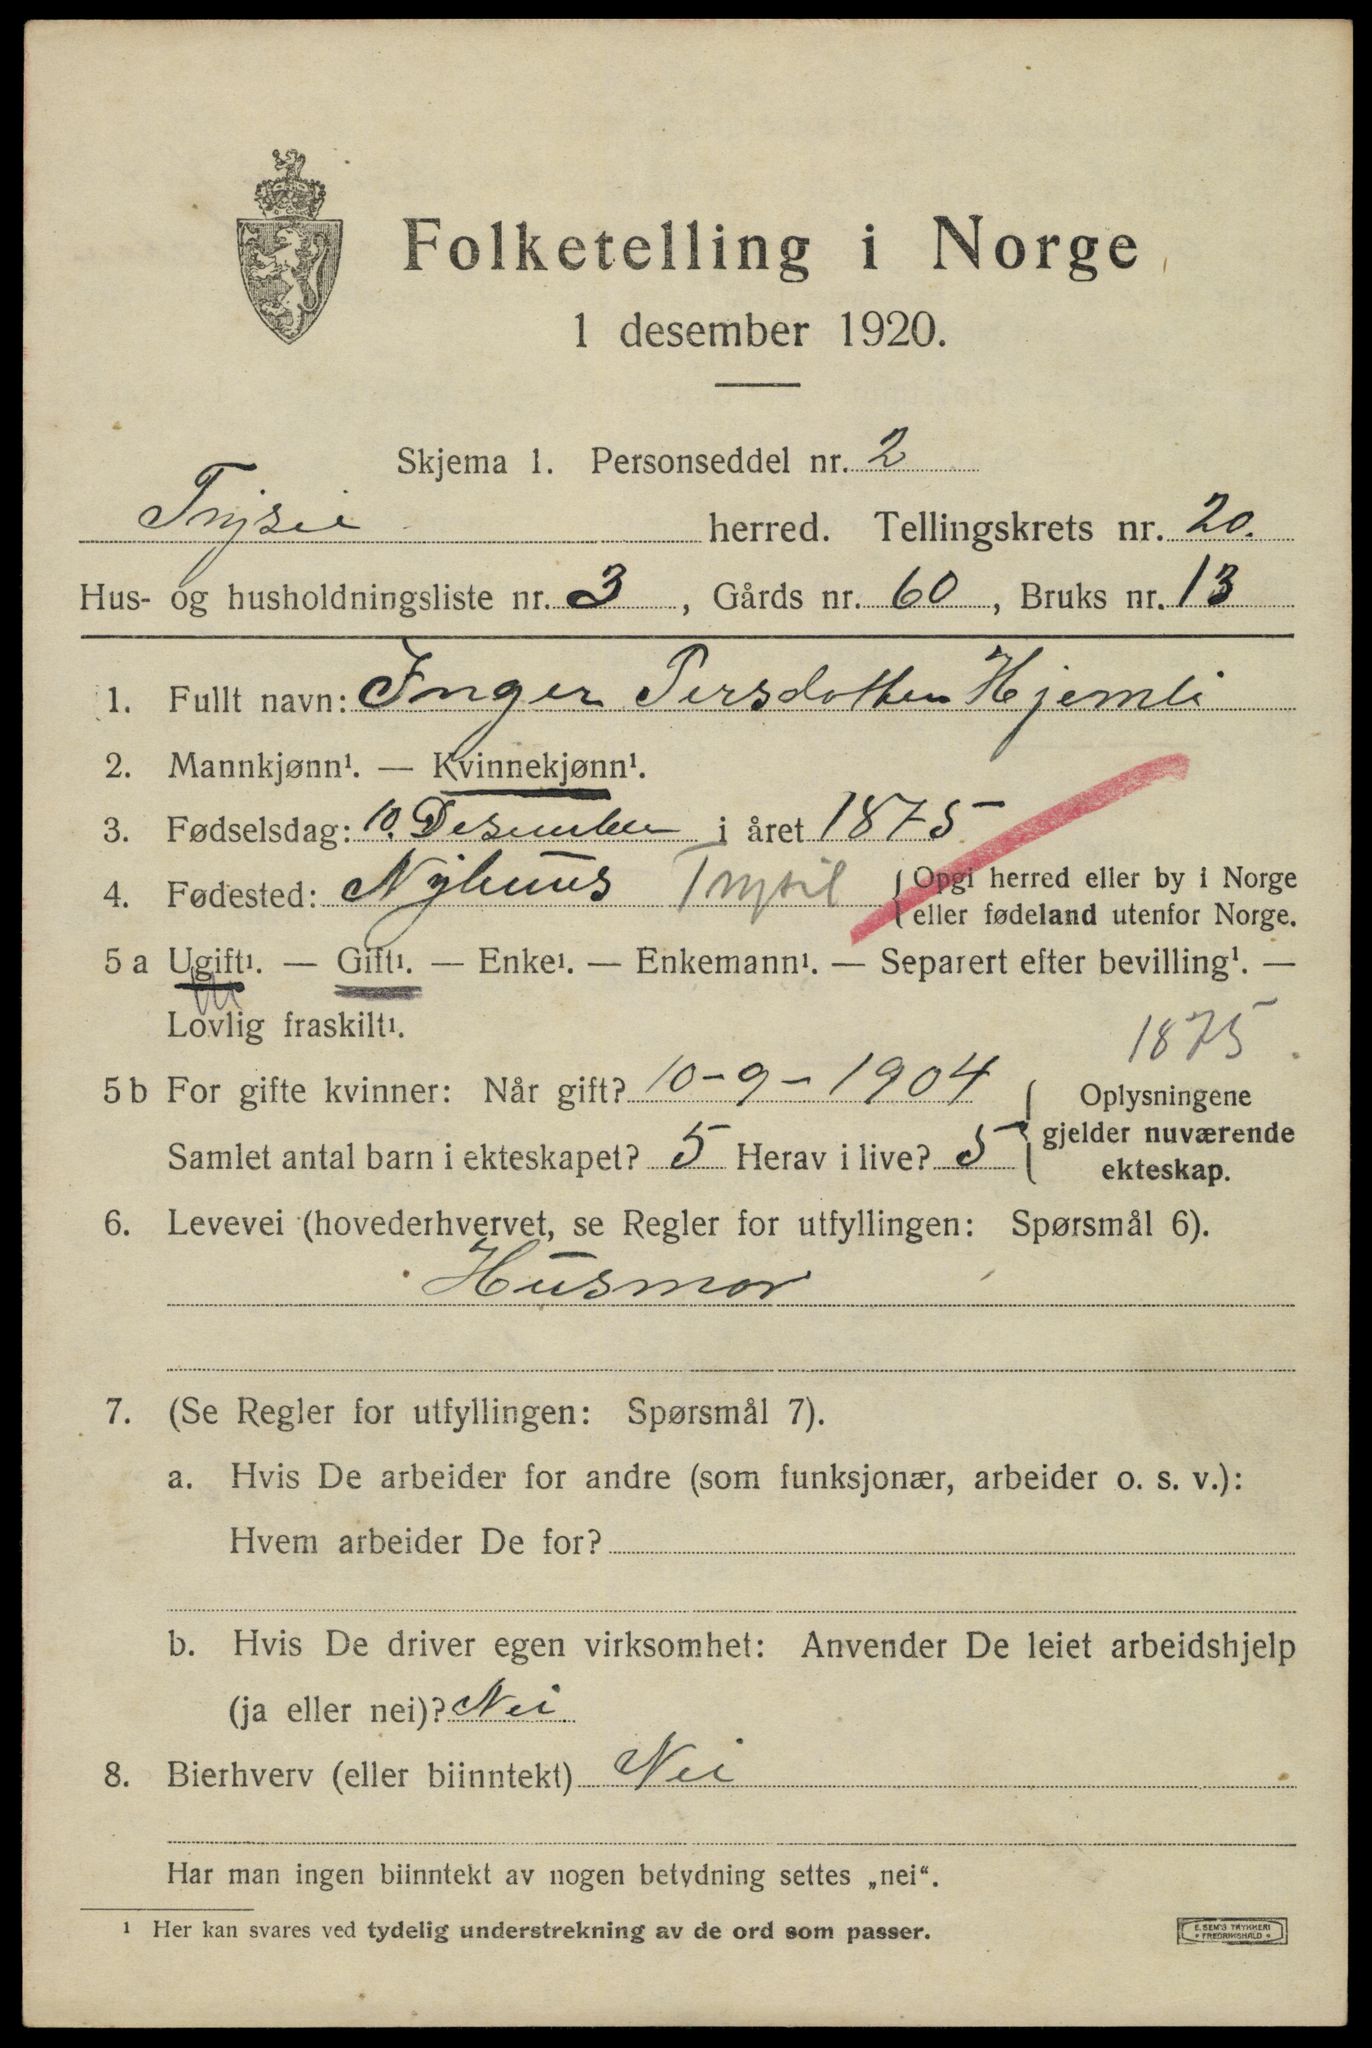 Folketelling i Norge
1 desember 1920.
Skjema 1. Personseddel nr. 2
Trysil herred. Tellingskrets nr. 20.
Hus- og husholdningsliste nr. 3, Gårds nr. 60, Bruks nr. 13
1. Fullt navn: Inger Persdotter Hjemli
2. Mannkjønn¹. — Kvinnekjønn¹.
3. Fødselsdag: 10. Desember i året 1875
4. Fødested: Nyhuus Trysil {Opgi herred eller by i Norge
eller fødeland utenfor Norge.
5 a Ugift¹. — Gift¹. — Enke¹. — Enkemann¹. — Separert efter bevilling¹. —
Lovlig fraskilt¹.
1875
5 b For gifte kvinner: Når gift? 10-9-1904 { Oplysningene
gjelder nuværende
ekteskap.
Samlet antal barn i ekteskapet? 5 Herav i live? 5
6. Levevei (hovederhvervet, se Regler for utfyllingen: Spørsmål 6).
Husmor
7. (Se Regler for utfyllingen: Spørsmål 7).
a. Hvis De arbeider for andre (som funksjonær, arbeider o. s. v.):
Hvem arbeider De for?
b. Hvis De driver egen virksomhet: Anvender De leiet arbeidshjelp
(ja eller nei)? Nei
8. Bierhverv (eller biinntekt) Nei
Har man ingen biinntekt av nogen betydning settes „nei“.
¹ Her kan svares ved tydelig understrekning av de ord som passer.
E. SEM'S TRYKKERI
* FREDRIKSHALD *